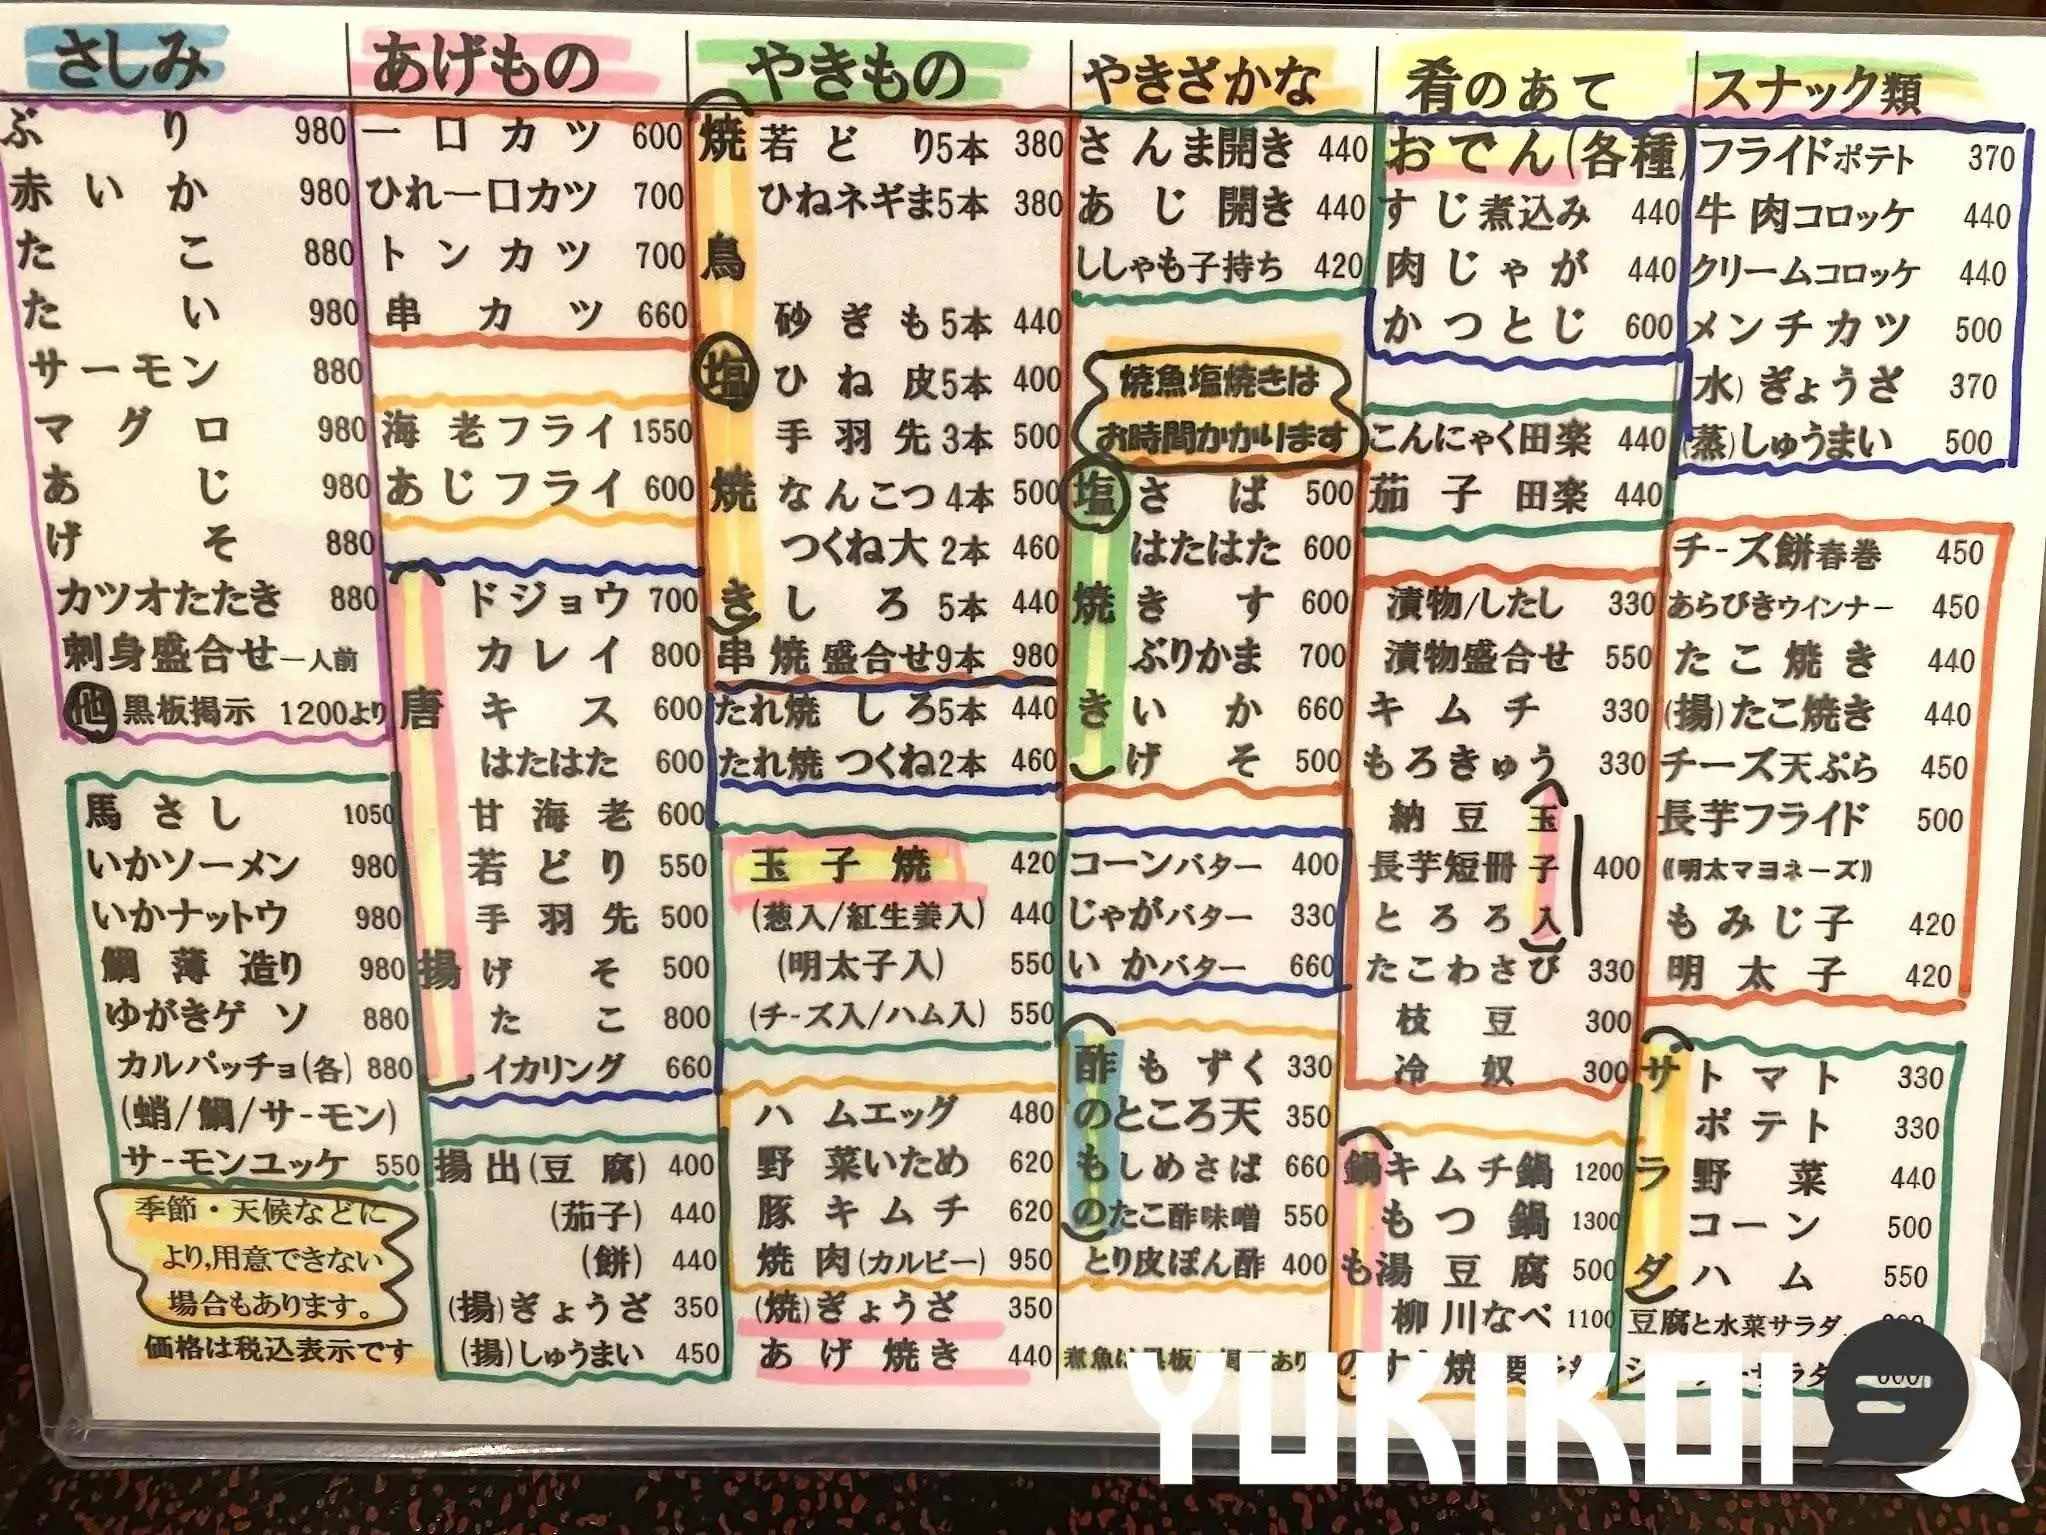 さしみ
ぶり 980
赤いか 980
たこ 880
たい 980
サーモン 880
マグロ 980
あじ 980
げそ 880
カツオたたき 880
刺身盛合せ一人前
他 黒板掲示 1200より
馬さし 1050
いかソーメン 980
いかナットウ 980
鯛薄造り 980
ゆがきゲソ 880
カルパッチョ(各) 880
(蛸/鯛/サーモン)
サーモンユッケ 550
季節・天候などに
より,用意できない
場合もあります。
価格は税込表示です
あげもの
一口カツ 600
ひれ一口カツ 700
トンカツ 700
串カツ 660
海老フライ 1550
あじフライ 600
唐揚
ドジョウ 700
カレイ 800
キス 600
はたはた 600
甘海老 600
若どり 550
手羽先 500
げそ 500
たこ 800
イカリング 660
揚出(豆腐) 400
(茄子) 440
(餅) 440
(揚)ぎょうざ 350
(揚)しゅうまい 450
やきもの
焼鳥 塩焼き
若どり5本 380
ひねネギま5本 380
砂ぎも5本 440
ひね皮5本 400
手羽先3本 500
なんこつ4本 500
つくね大2本 460
しろ5本 440
串焼盛合せ9本 980
たれ焼しろ5本 440
たれ焼つくね2本 460
玉子焼 420
(葱入/紅生姜入) 440
(明太子入) 550
(チーズ入/ハム入) 550
ハムエッグ 480
野菜いため 620
豚キムチ 620
焼肉(カルビー) 950
(焼)ぎょうざ 350
あげ焼き 440
やきざかな
さんま開き 440
あじ開き 440
ししゃも子持ち 420
焼魚塩焼きは
お時間かかります
塩焼き
さば 500
はたはた 600
きす 600
ぶりかま 700
いか 660
げそ 500
コーンバター 400
じゃがバター 330
いかバター 660
酢のもの
もずく 330
ところ天 350
しめさば 660
たこ酢味噌 550
とり皮ぽん酢 400
煮魚は黒板
肴のあて
おでん(各種)
すじ煮込み 440
肉じゃが 440
かつとじ 600
こんにゃく田楽 440
茄子田楽 440
漬物/したし 330
漬物盛合せ 550
キムチ 330
もろきゅう 330
納豆
長芋短冊 (玉子入) 400
とろろ
たこわさび 330
枝豆 300
冷奴 300
鍋もの
キムチ鍋 1200
もつ鍋 1300
湯豆腐 500
柳川なべ 1100
スナック類
フライドポテト 370
牛肉コロッケ 440
クリームコロッケ 440
メンチカツ 500
(水)ぎょうざ 370
(蒸)しゅうまい 500
チーズ餅春巻 450
あらびきウインナー 450
たこ焼き 440
(揚)たこ焼き 440
チーズ天ぷら 450
長芋フライド 500
《明太マヨネーズ》
もみじ子 420
明太子 420
サラダ
トマト 330
ポテト 330
野菜 440
コーン 500
ハム 550
豆腐と水菜サラダ
YUKIKOI